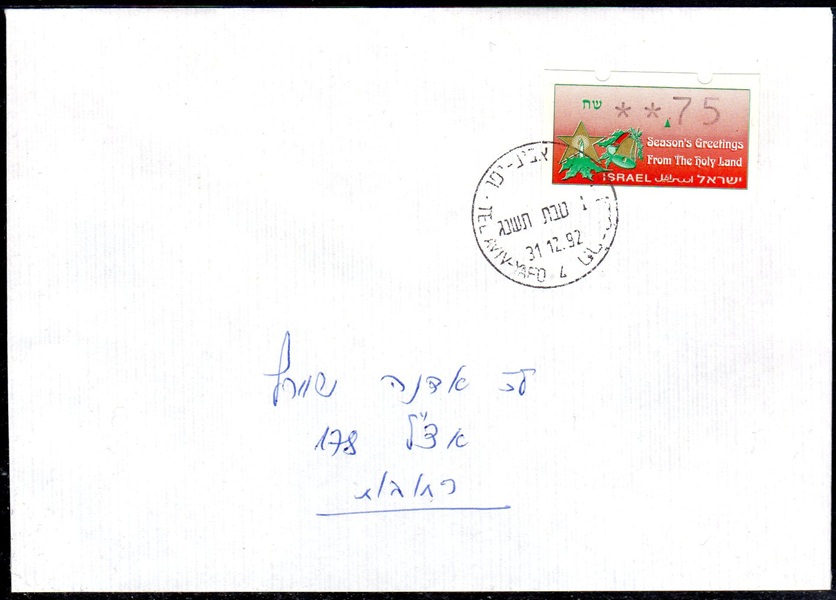 שח **75
Season's Greetings
From The Holy Land
ISRAEL اسرائيل ישראל
אביב - יפו
טבת תשנג
31.12.92
TEL AVIV-YAFO
אדנה שוורץ
178
רחובות